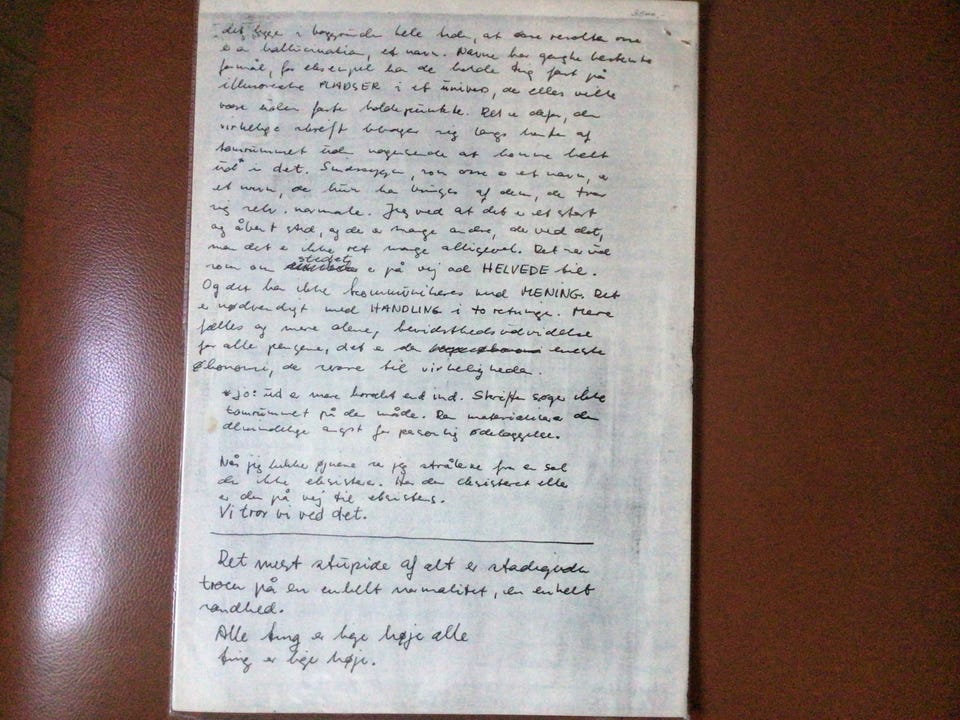 det ligger i baggrunden hele tiden, at osse
er en hallucination, et navn. Navne har ganske bestemte
formål, for eksempel har de holde ting fast på
illusoriske PLADSER i et univers, der ellers ville
være uden faste holdepunkte. Det er derfor, den
virkelige skrift bevæger sig langs kanten af
tomrummet uden nogensinde at komme helt
ud* i det. Sindssygen, som osse er et navn, er
et navn, der kun kan bruges af dem, der tror
sig selv normale. Jeg ved at det er et stort
og åbent sted, og der er mange andre, der ved det,
men det er ikke ret mange alligevel. Det ser ud
som om stedet er på vej ad HELVEDE til.
Og det kan ikke kommunikeres med MENING. Det
er nødvendigt med HANDLING i to retninger. Mere
fælles og mere alene, bevidsthedsudvidelse
for alle pengene, det er den eneste
økonomi, der svarer til virkeligheden.
* jo: ud er mere korrekt end ind. Skriften søger ikke
tomrummet på den måde. Den materialiserer den
almindelige angst for personlig ødelæggelse.
Når jeg lukker øjnene ser jeg strålerne fra en sol
der ikke eksisterer. Har den eksisteret eller
er den på vej til eksistens.
Vi tror vi ved det.
Det mest stupide af alt er stadigvæk
troen på en enkelt normalitet, en enkelt
sandhed.
Alle ting er lige høje alle
ting er lige høje.